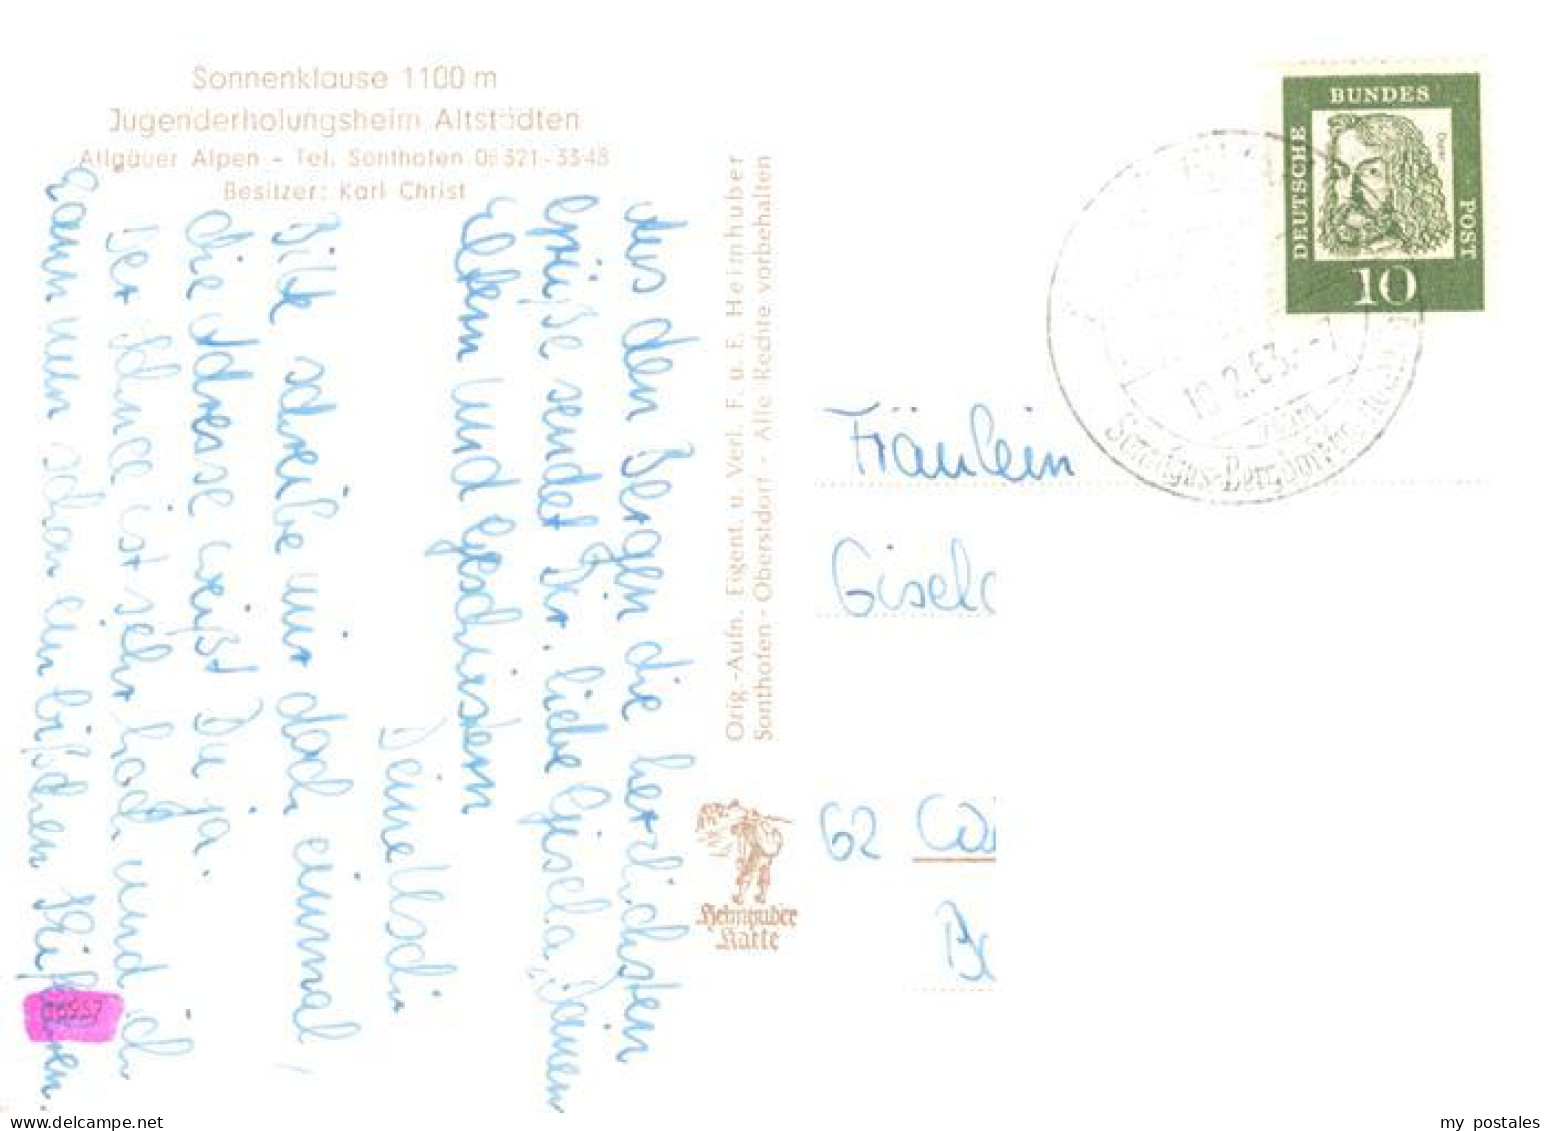 Sonnenklause 1100 m
Jugenderholungsheim Altstädten
Allgäuer Alpen - Tel. Sonthofen 08321-3348
Besitzer: Karl Christ
Aus den Bergen die herzlichsten
Grüße sendet Dir, liebe Gisela, Deinen
Eltern und Geschwistern
Deine Uschi
Bitte schreibe mir doch einmal,
die Adresse weißt Du ja.
Der Schnee ist sehr hoch und ich
kann nun schon ein bißchen Skifahren.
06957
Orig.-Aufn. Eigent. u. Verl. F. u. E. Heimhuber
Sonthofen - Oberstdorf - Alle Rechte vorbehalten
Heimhuber
Karte
DEUTSCHE
BUNDES
POST
Dürer
10
10.2.63.-7
Fräulein
Gisela
62
www.delcampe.net
my postales